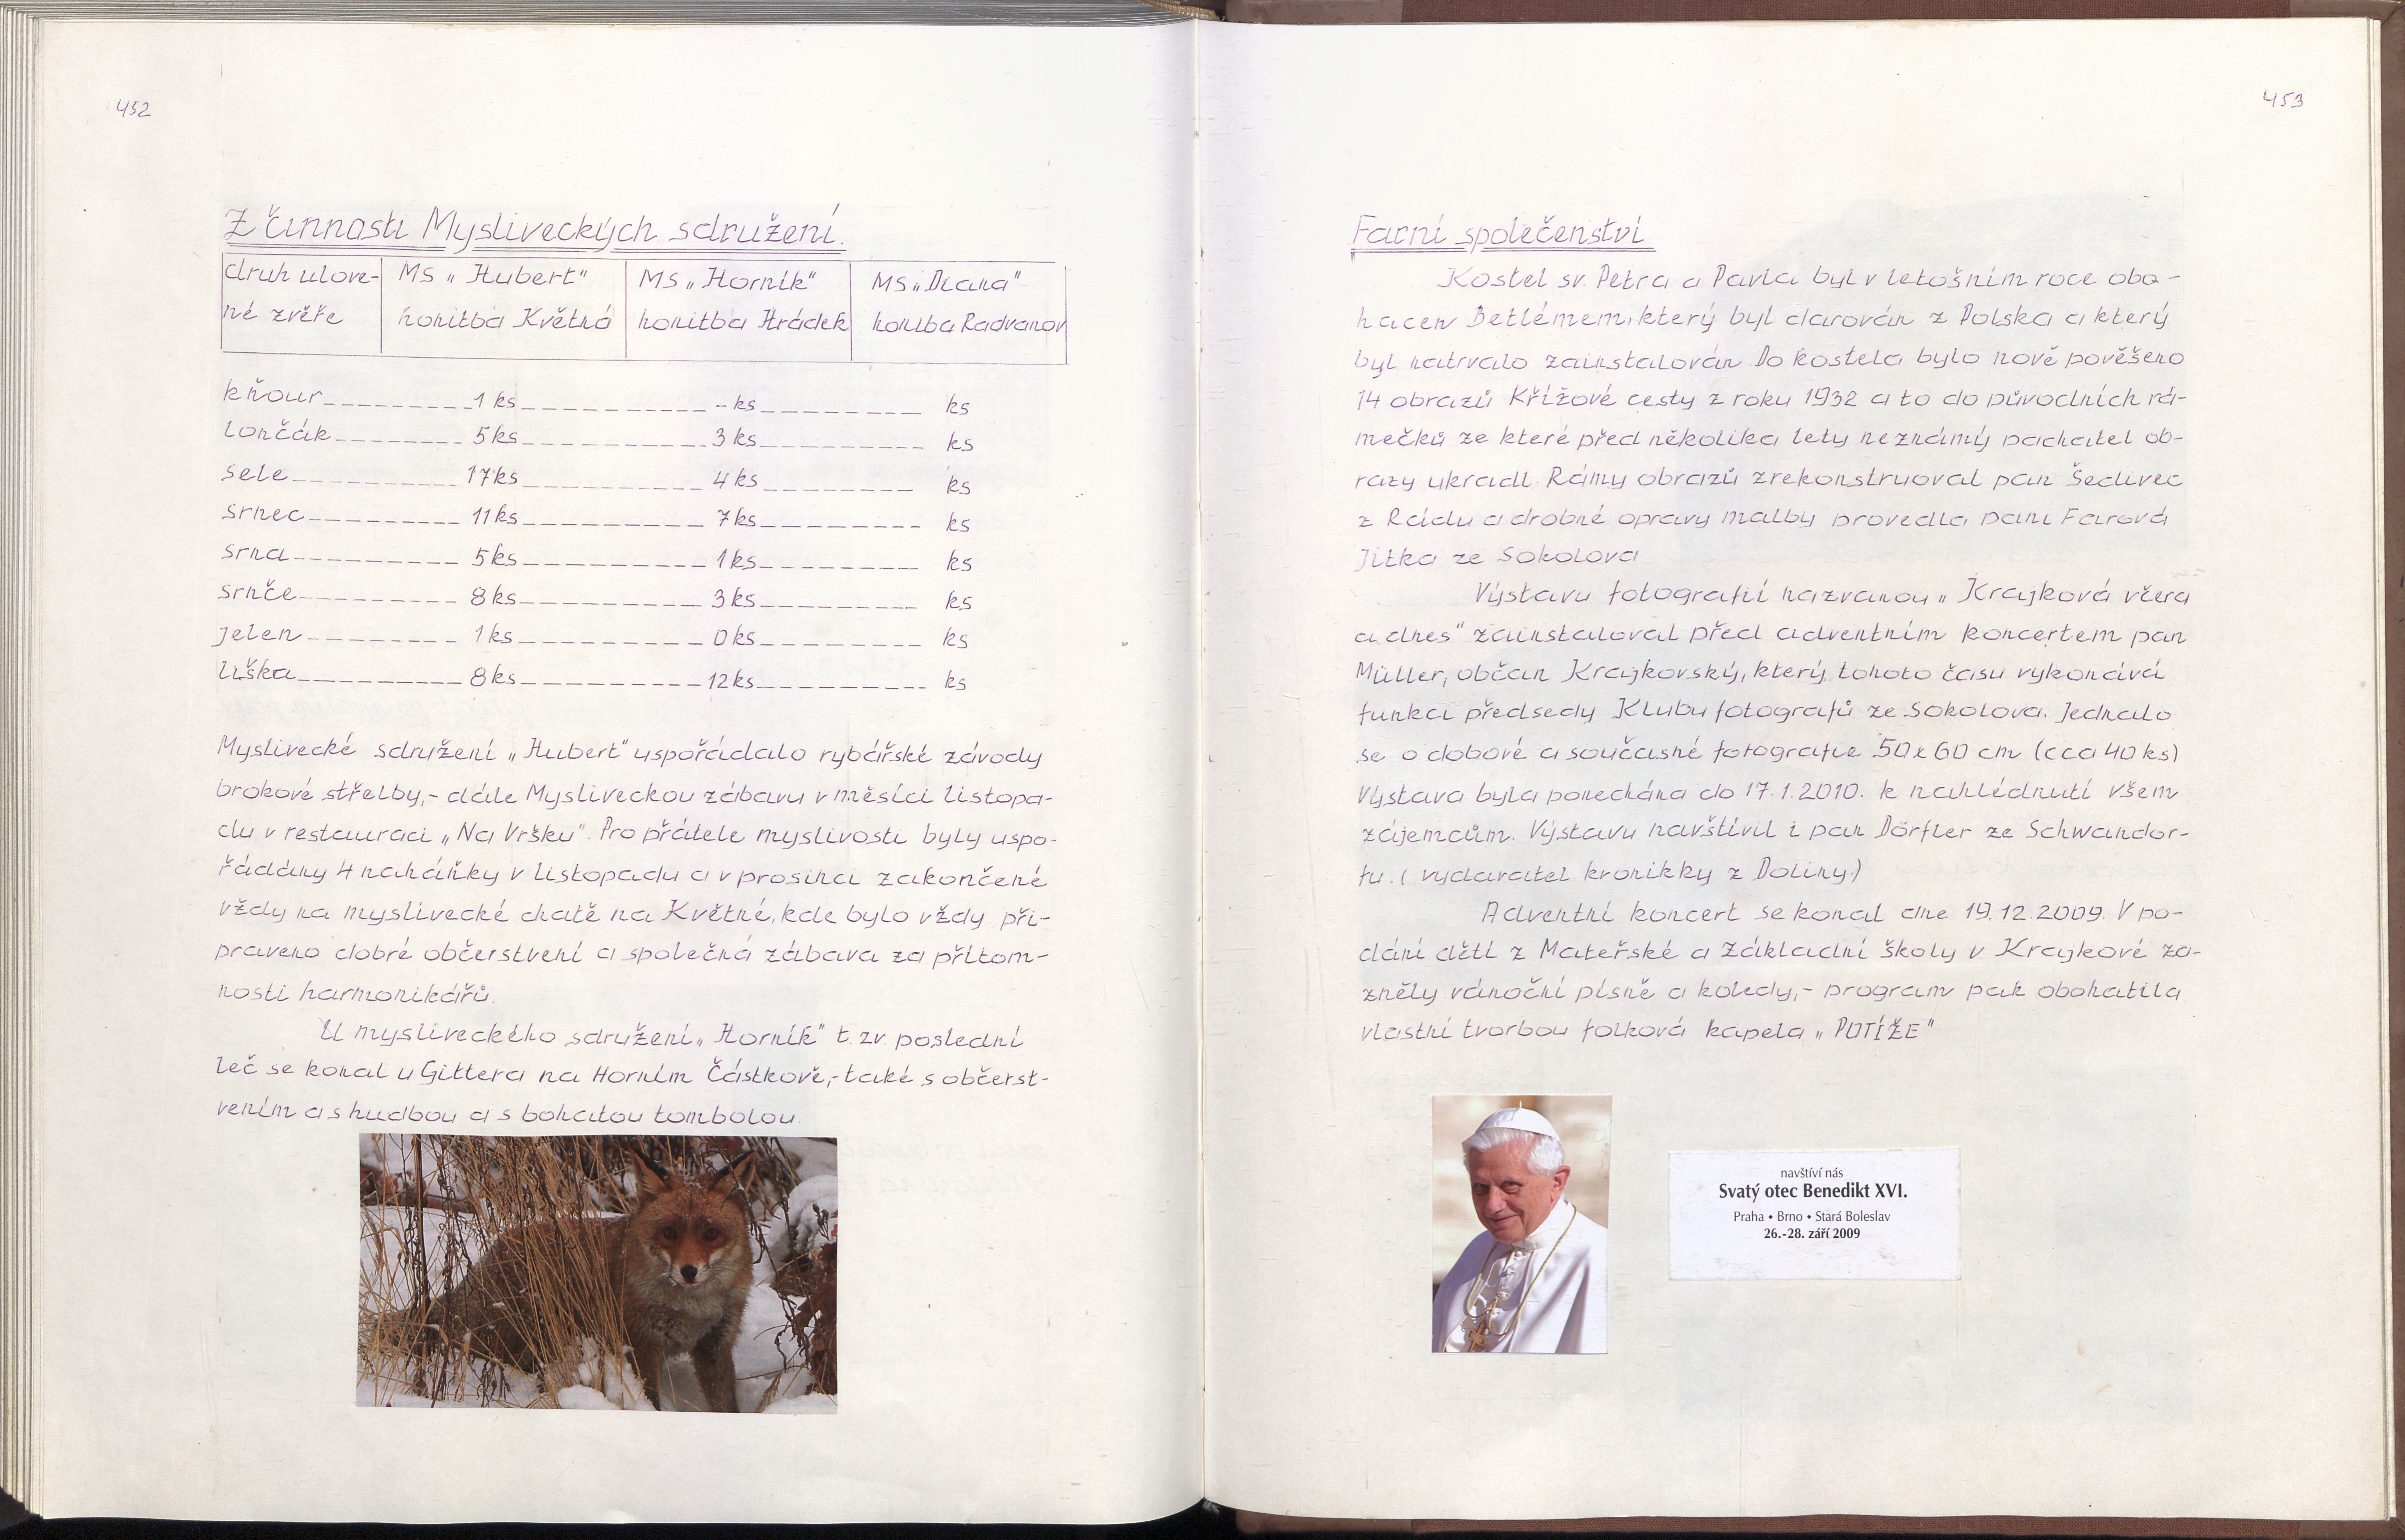 452
Z činnosti Mysliveckých sdružení.
druh ulove- MS „Hubert" MS „Horník" MS „Diana"
né zvěře honitba Květná honitba Hrádek honitba Radvanov
kňour 1 ks - ks ks
lončák 5 ks 3 ks ks
sele 17 ks 4 ks ks
srnec 11 ks 7 ks ks
srna 5 ks 1 ks ks
srnče 8 ks 3 ks ks
jelen 1 ks 0 ks ks
liška 8 ks 12 ks ks
Myslivecké sdružení „Hubert" uspořádalo rybářské závody
brokové střelby,- dále Mysliveckou zábavu v měsíci listopa-
du v restauraci „Na Vršku". Pro přátele myslivosti byly uspo-
řádány 4 naháňky v listopadu a v prosinci zakončené
vždy na myslivecké chatě na Květné, kde bylo vždy při-
praveno dobré občerstvení a společná zábava za přítom-
nosti harmonikářů.
U mysliveckého sdružení „Horník" t. zv. poslední
leč se konal u Gittera na Horním Částkově,- také s občerst-
vením a s hudbou a s bohatou tombolou.
453
Farní společenství
Kostel sv. Petra a Pavla byl v letošním roce obo-
hacen Betlémem, který byl darován z Polska a který
byl natrvalo zainstalován. Do kostela bylo nově pověšeno
14 obrazů Křížové cesty z roku 1932 a to do původních rá-
mečků ze které před několika lety neznámý pachatel ob-
razy ukradl. Rámy obrazů zrekonstruoval pan Šedivec
z Rádu a drobné opravy malby provedla paní Farová
Jitka ze Sokolova
Výstavu fotografií nazvanou „Krajková včera
a dnes" zainstaloval před adventním koncertem pan
Müller, občan Krajkovský, který tohoto času vykonává
funkci předsedy Klubu fotografů ze Sokolova. Jednalo
se o dobové a současné fotografie 50 x 60 cm (cca 40 ks)
Výstava byla ponechána do 17. 1. 2010. k nahlédnutí všem
zájemcům. Výstavu navštívil i pan Dörfler ze Schwandor-
fu. ( vydavatel kronikky z Doliny.)
Adventní koncert se konal dne 19. 12. 2009. V po-
dání dětí z Mateřské a základní školy v Krajkové za-
zněly vánoční písně a koledy,- program pak obohatila
vlastní tvorbou folková kapela „POTÍŽE"
navštíví nás
Svatý otec Benedikt XVI.
Praha • Brno • Stará Boleslav
26.-28. září 2009